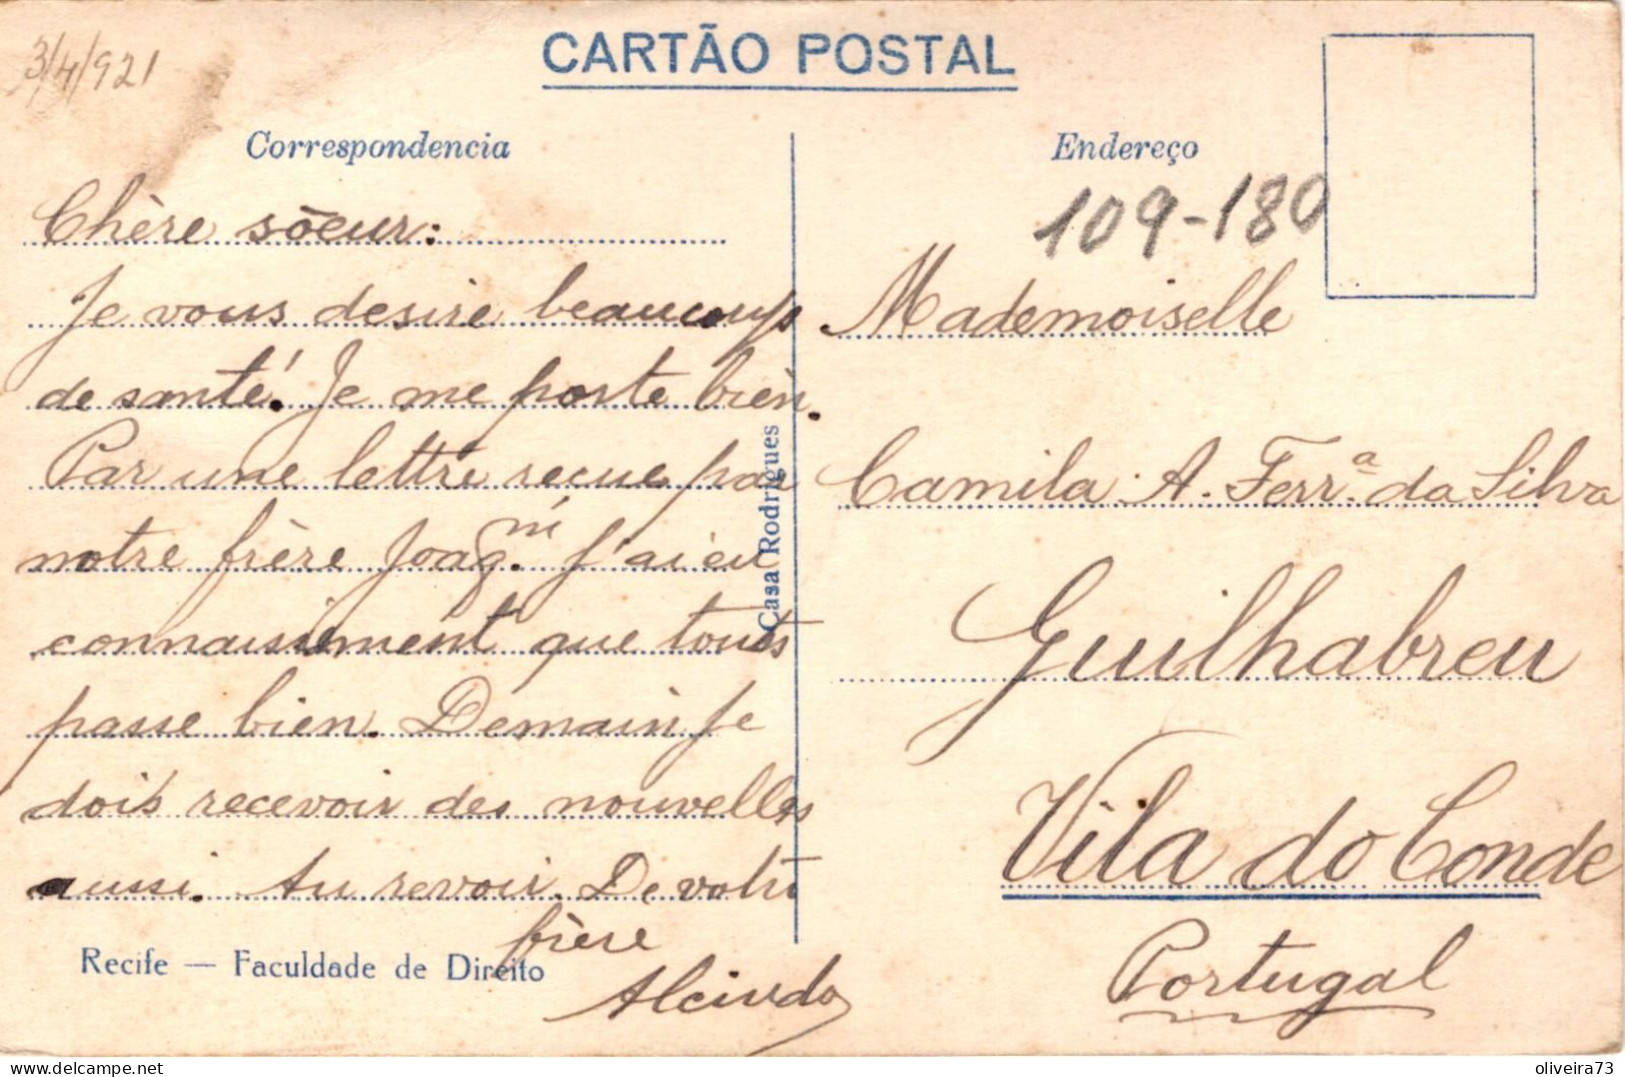 3/4/921
CARTÃO POSTAL
Correspondencia
Chère sōeur:
Je vous desire beaucoup
de santé! Je me porte bien.
Par une lettre reçue par
notre frère Joaq.m j'ai eu
connaissement que touts
passe bien. Demain je
dois recevoir des nouvelles
aussi. Au revoir. De votre
frère
Alcindo
Recife — Faculdade de Direito
Casa Rodrigues
Endereço
109-180
Mademoiselle
Camila A. Ferr.ª da Silva
Guilhabreu
Vila do Conde
Portugal
oliveira73